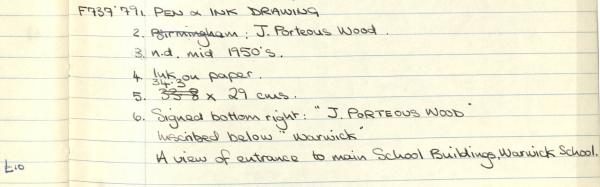 F739'79 1. PEN & INK DRAWING
2. Birmingham: J. Porteous Wood.
3. n.d. mid 1950's.
4. Ink on paper.
34.3
5. 33.8 x 29 cms.
6. Signed bottom right: "J. PORTEOUS WOOD"
Inscribed below "Warwick"
A view of entrance to main School Buildings, Warwick School.
£10